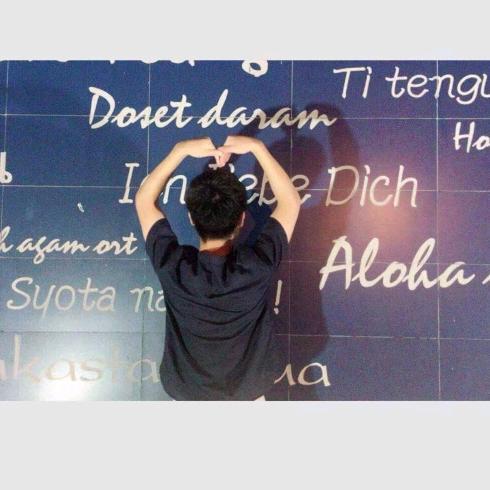 Ti tengu
Doset daram
Ho
Ich liebe Dich
h agam ort
Aloha
Syota na !
kasta ua